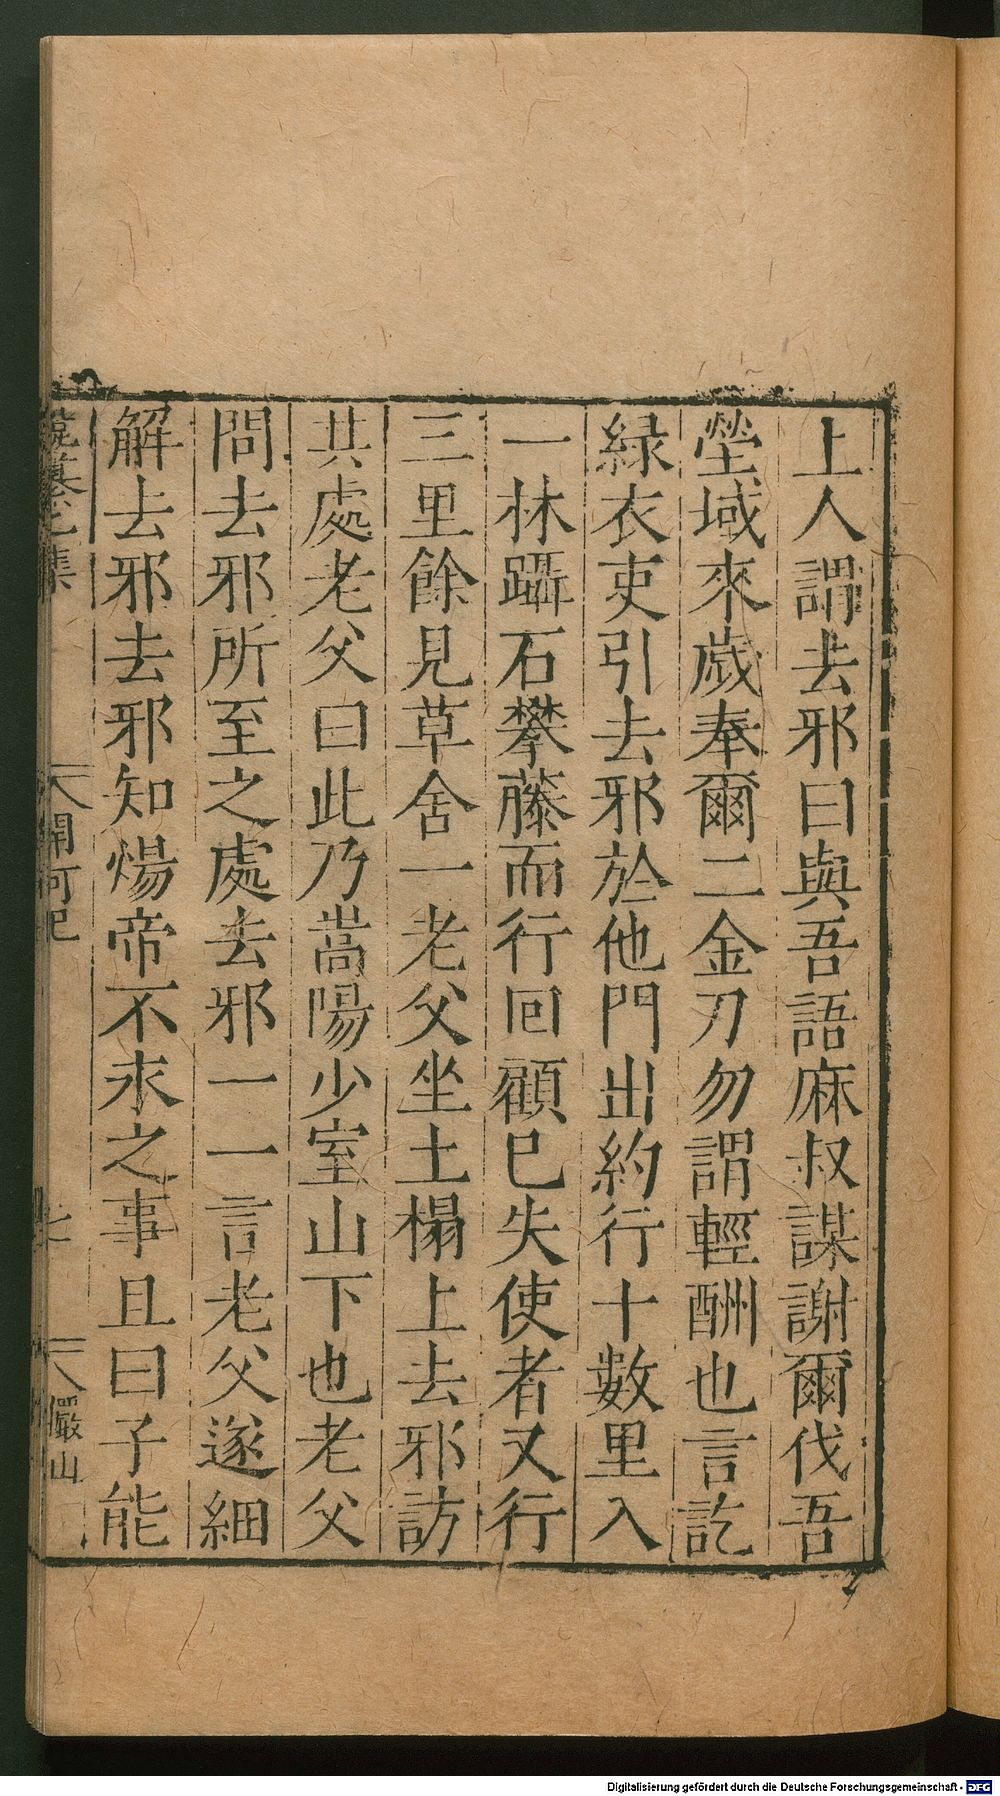 上人謂去邪曰與吾語麻叔謀謝爾伐吾
塋域來歲奉爾二金刀勿謂輕酬也言訖
緑衣吏引去邪於他門出約行十數里入
一林躡石攀藤而行回顧已失使者又行
三里餘見草舍一老父坐土榻上去邪訪
其處老父曰此乃嵩陽少室山下也老父
問去邪所至之處去邪一一言老父遂細
解去邪去邪知煬帝不永之事且曰子能
開河記
七
儼山
Digitalisierung gefördert durch die Deutsche Forschungsgemeinschaft - DFG